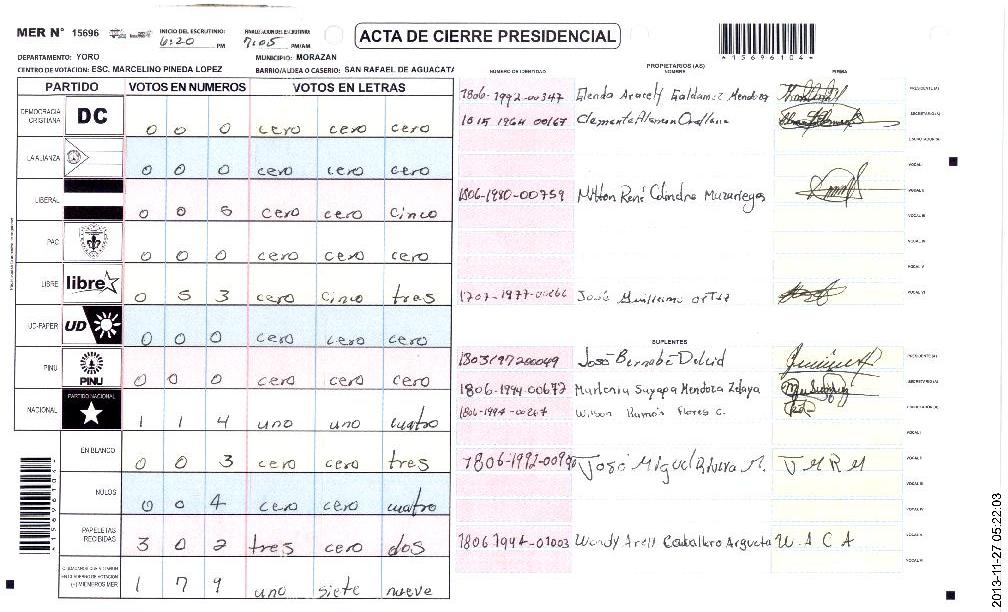 MER N° 15696
INICIO DEL ESCRUTINIO: 6:20 PM
FINALIZACION DEL ESCRUTINIO: 7:05 PM/AM
ACTA DE CIERRE PRESIDENCIAL
*15696104*
DEPARTAMENTO: YORO
MUNICIPIO: MORAZAN
CENTRO DE VOTACION: ESC. MARCELINO PINEDA LOPEZ
BARRIO/ALDEA O CASERIO: SAN RAFAEL DE AGUACATA
PARTIDO VOTOS EN NUMEROS VOTOS EN LETRAS
DEMOCRACIA CRISTIANA DC 0 0 0 cero cero cero
LA ALIANZA 0 0 0 cero cero cero
LIBERAL 0 0 5 cero cero cinco
PAC 0 0 0 cero cero cero
LIBRE libre 0 5 3 cero cinco tres
UD-FAPER UD 0 0 0 cero cero cero
PINU PINU 0 0 0 cero cero cero
NACIONAL PARTIDO NACIONAL 1 1 4 uno uno cuatro
EN BLANCO 0 0 3 cero cero tres
NULOS 0 0 4 cero cero cuatro
PAPELETAS RECIBIDAS 3 0 2 tres cero dos
CIUDADANOS QUE VOTARON EN CUADERNO DE VOTACION (+) MIEMBROS MER 1 7 9 uno siete nueve
NUMERO DE IDENTIDAD PROPIETARIOS (AS) NOMBRE FIRMA
1806-1992-00347 Elenda Aracely Galdamez Mendoza PRESIDENTE (A)
1015 1964 00167 Clemente Aleman Orellana SECRETARIO (A)
ESCRUTADOR (A)
VOCAL I
1806-1980-00759 Milton René Colindre Mazariegos VOCAL II
VOCAL III
VOCAL IV
VOCAL V
1707-1977-00266 José Guillermo Ortiz VOCAL VI
SUPLENTES
1803197200049 José Bernabé Delcid PRESIDENTE (A)
1806-1994-00672 Marlenia Suyapa Mendoza Zelaya SECRETARIO (A)
1806-1994-00267 Wilson Ramón Flores C. ESCRUTADOR (A)
VOCAL I
1806-1992-0090 José Miguel Rivera M. J M R M VOCAL II
VOCAL III
VOCAL IV
1806 1994-01003 Wendy Areli Caballero Argueta W A C A VOCAL V
VOCAL VI
2013-11-27 05:22:03